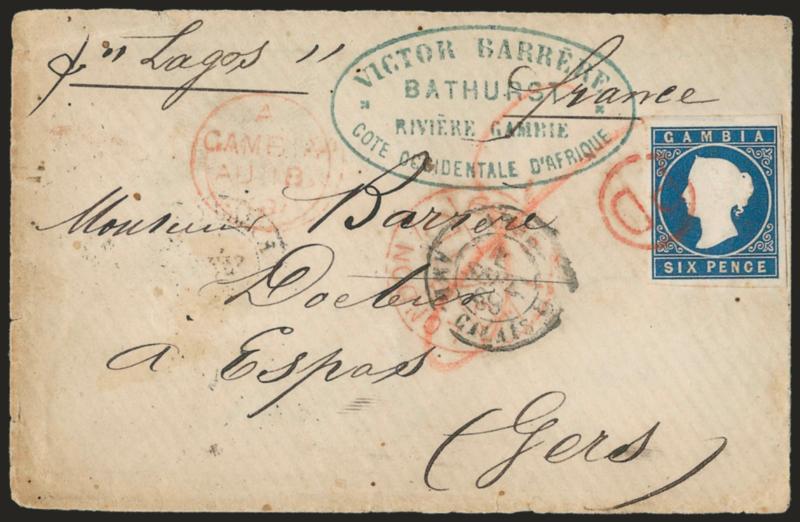 p "Lagos"
VICTOR BARRÈRE
BATHURST
RIVIÈRE GAMBIE
CÔTE OCCIDENTALE D'AFRIQUE
France
GAMBIA
SIX PENCE
A
GAMBIA
AU 18
PD
Monsieur Barrère
Docteur
LONDON
CALAIS
à Espas
(Gers)